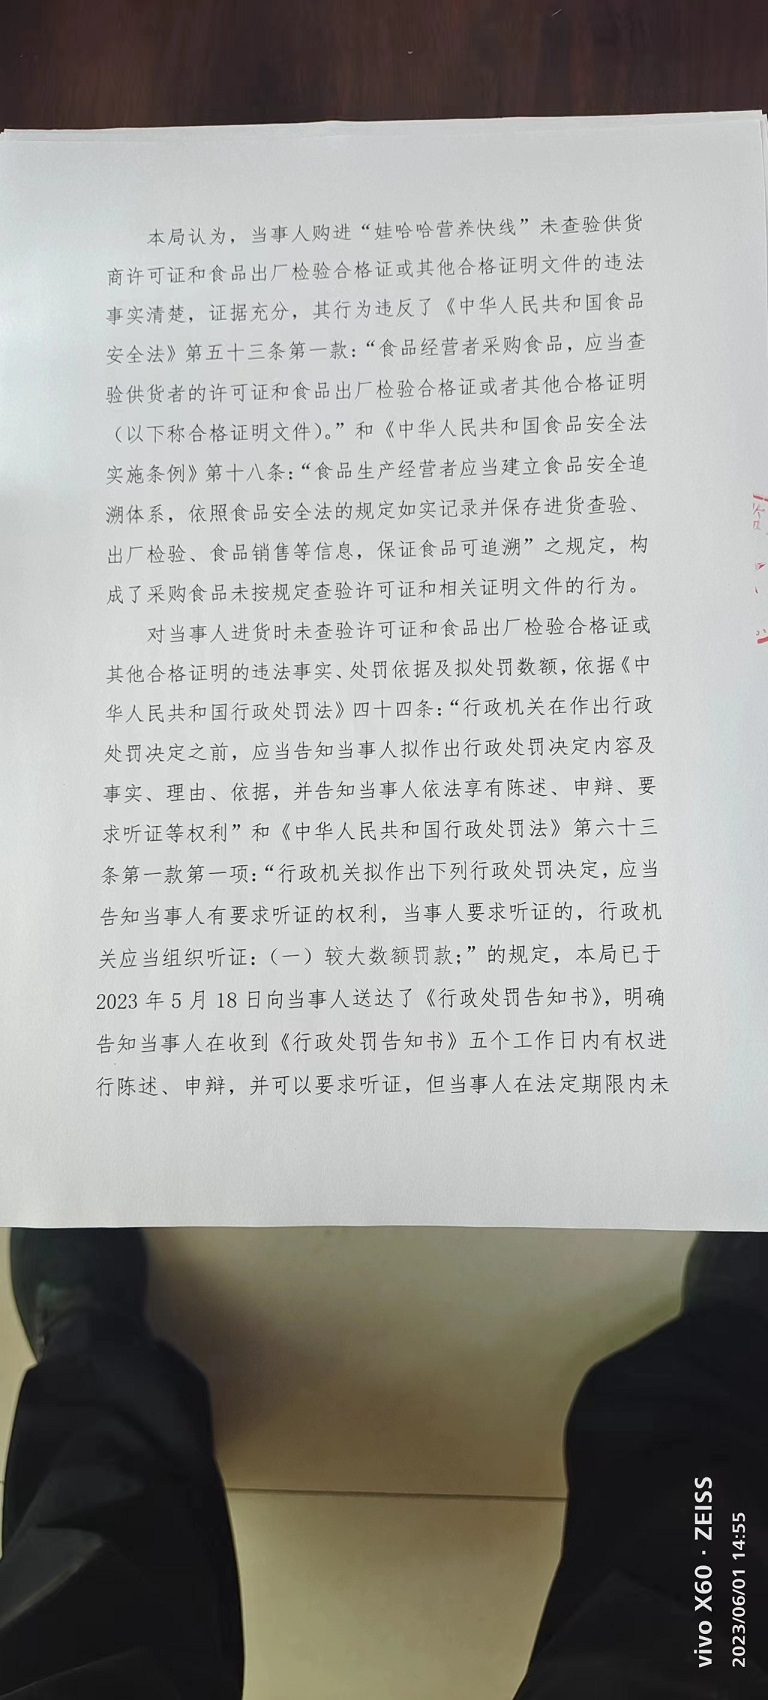 本局认为，当事人购进“娃哈哈营养快线”未查验供货
商许可证和食品出厂检验合格证或其他合格证明文件的违法
事实清楚，证据充分，其行为违反了《中华人民共和国食品
安全法》第五十三条第一款：“食品经营者采购食品，应当查
验供货者的许可证和食品出厂检验合格证或者其他合格证明
（以下称合格证明文件）。”和《中华人民共和国食品安全法
实施条例》第十八条：“食品生产经营者应当建立食品安全追
溯体系，依照食品安全法的规定如实记录并保存进货查验、
出厂检验、食品销售等信息，保证食品可追溯”之规定，构
成了采购食品未按规定查验许可证和相关证明文件的行为。
对当事人进货时未查验许可证和食品出厂检验合格证或
其他合格证明的违法事实、处罚依据及拟处罚数额，依据《中
华人民共和国行政处罚法》四十四条：“行政机关在作出行政
处罚决定之前，应当告知当事人拟作出行政处罚决定内容及
事实、理由、依据，并告知当事人依法享有陈述、申辩、要
求听证等权利”和《中华人民共和国行政处罚法》第六十三
条第一款第一项：“行政机关拟作出下列行政处罚决定，应当
告知当事人有要求听证的权利，当事人要求听证的，行政机
关应当组织听证：（一）较大数额罚款；”的规定，本局已于
2023 年 5 月 18 日向当事人送达了《行政处罚告知书》，明确
告知当事人在收到《行政处罚告知书》五个工作日内有权进
行陈述、申辩，并可以要求听证，但当事人在法定期限内未
vivo X60 · ZEISS
2023/06/01 14:55